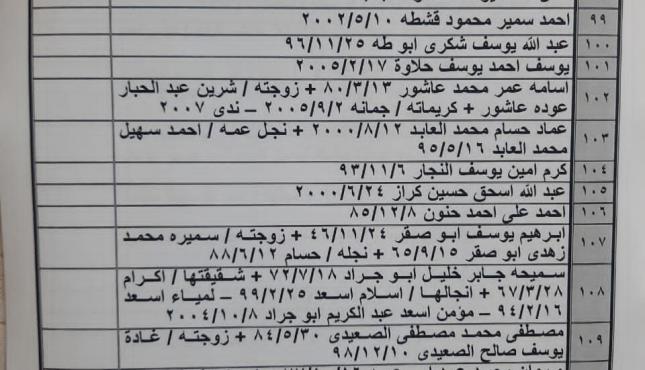 ٩٩ احمد سمير محمود قشطه ٢٠٠٢/٥/١٠
١٠٠ عبد الله يوسف شكرى ابو طه ٩٦/١١/٢٥
١٠١ يوسف احمد يوسف حلاوة ٢٠٠٥/٢/١٧
١٠٢ اسامه عمر محمد عاشور ٨٠/٣/١٣ + زوجته / شرين عبد الحبار
عوده عاشور + كريماته / جمانه ٢٠٠٥/٩/٢ – ندى ٢٠٠٧
١٠٣ عماد حسام محمد العابد ٢٠٠٠/٨/١٢ + نجل عمه / احمد سهيل
محمد العابد ٩٥/٥/١٦
١٠٤ كرم امين يوسف النجار ٩٣/١١/٦
١٠٥ عبد الله اسحق حسين كراز ٢٠٠٠/٦/٢٤
١٠٦ احمد على احمد حنون ٨٥/١٢/٨
١٠٧ ابرهيم يوسف ابو صقر ٤٦/١١/٢٤ + زوجته / سميره محمد
زهدى ابو صقر ٦٥/٩/١٥ + نجله / حسام ٨٨/٦/١٢
١٠٨ سميحه جابر خليل ابو جراد ٧٢/٧/١٨ + شقيقتها / اكرام
٦٧/٣/٢٨ + انجالها / اسلام اسعد ٩٩/٢/٢٥ – لمياء اسعد
٩٤/٢/١٦ – مؤمن اسعد عبد الكريم ابو جراد ٢٠٠٤/١٠/٨
١٠٩ مصطفى محمد مصطفى الصعيدى ٨٤/٥/٣٠ + زوجته / غادة
يوسف صالح الصعيدى ٩٨/١٢/١٠